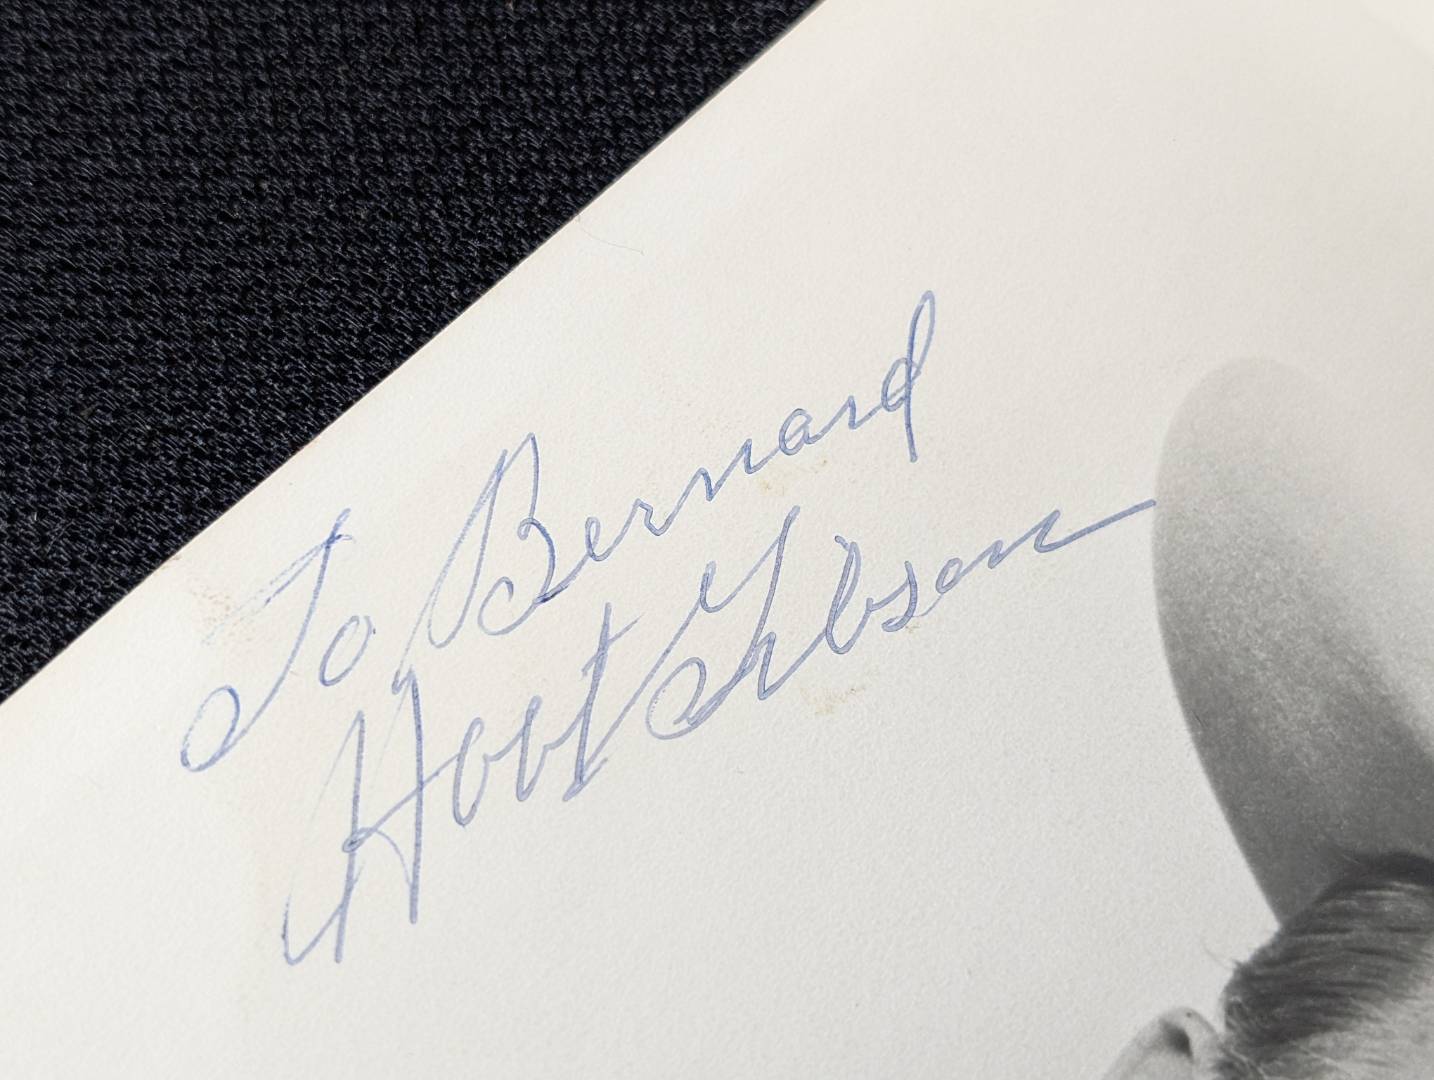 To Bernard
Hoot Gibson